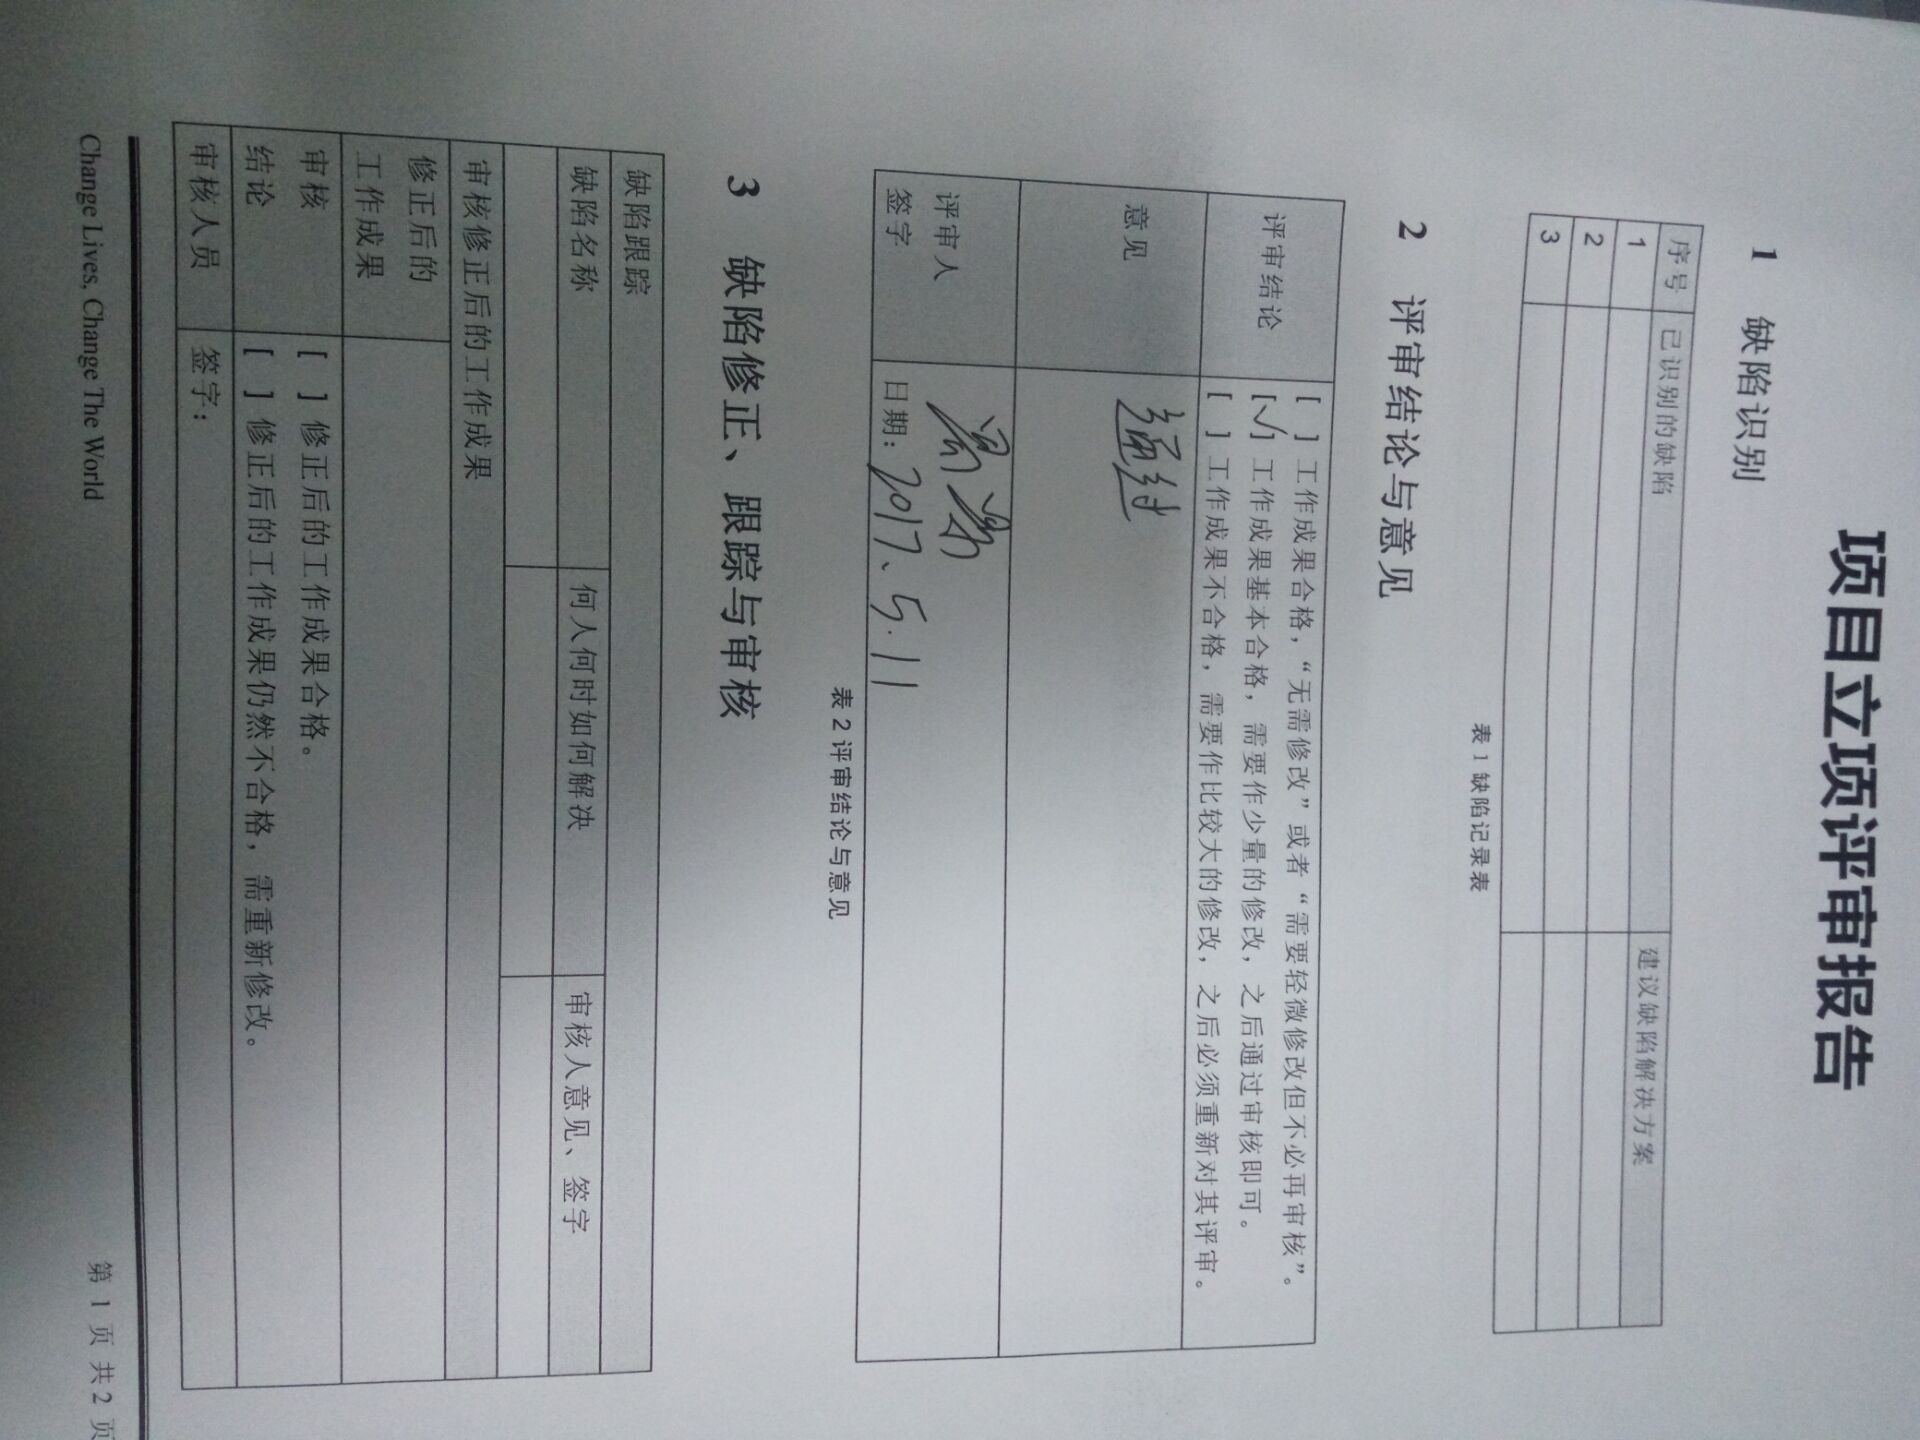 项目立项评审报告
1 缺陷识别
序号 已识别的缺陷 建议缺陷解决方案
1
2
3
表 1 缺陷记录表
2 评审结论与意见
评审结论
[ ] 工作成果合格，“无需修改”或者“需要轻微修改但不必再审核”。
[√] 工作成果基本合格，需要作少量的修改，之后通过审核即可。
[ ] 工作成果不合格，需要作比较大的修改，之后必须重新对其评审。
意见 通过
评审人
签字
日期：2017、5.11
表 2 评审结论与意见
3 缺陷修正、跟踪与审核
缺陷跟踪
缺陷名称 何人何时如何解决 审核人意见、签字
审核修正后的工作成果
修正后的
工作成果
审核
结论
[ ] 修正后的工作成果合格。
[ ] 修正后的工作成果仍然不合格，需重新修改。
审核人员 签字：
Change Lives, Change The World 第 1 页 共 2 页